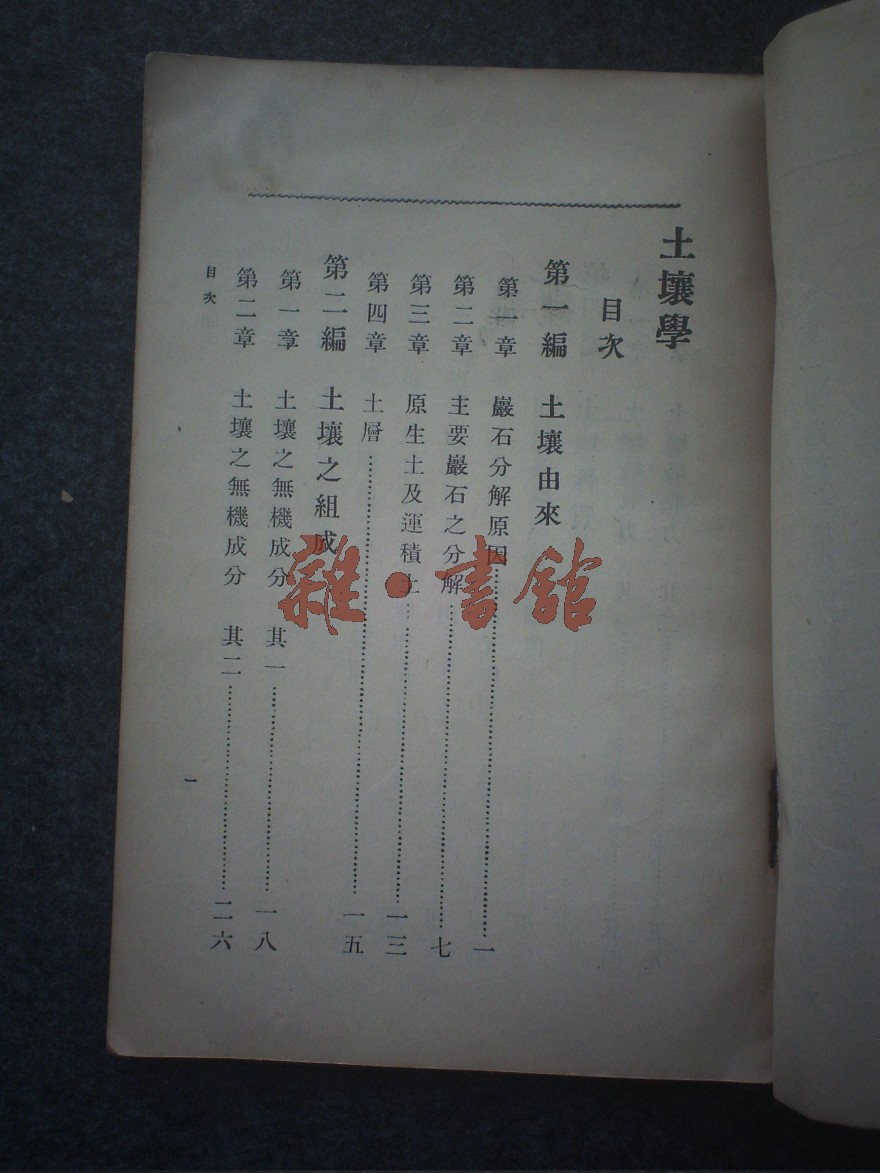 土壤學
目次
第一編 土壤由來
第一章 巖石分解原因……一
第二章 主要巖石之分解……七
第三章 原生土及運積土……一三
第四章 土層……一五
第二編 土壤之組成
第一章 土壤之無機成分 其一……一八
第二章 土壤之無機成分 其二……二六
目次
一
雜·書館